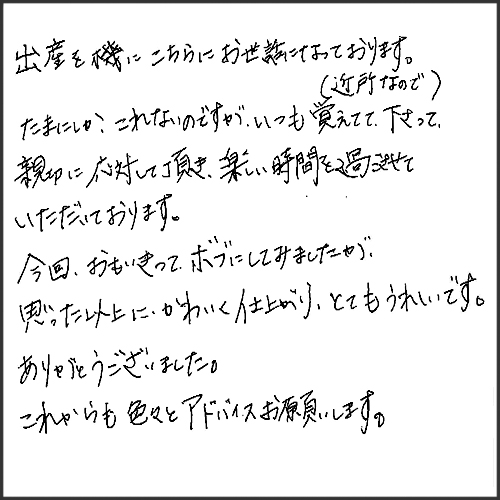 出産を機にこちらにお世話になっております。
(近所なので)
たまにしか、これないのですが、いつも覚えてて下さって、
親切に応対して頂き、楽しい時間を過ごさせて
いただいております。
今回、おもいきって、ボブにしてみましたが、
思った以上に、かわいく仕上がり、とてもうれしいです。
ありがとうございました。
これからも色々とアドバイスお願いします。